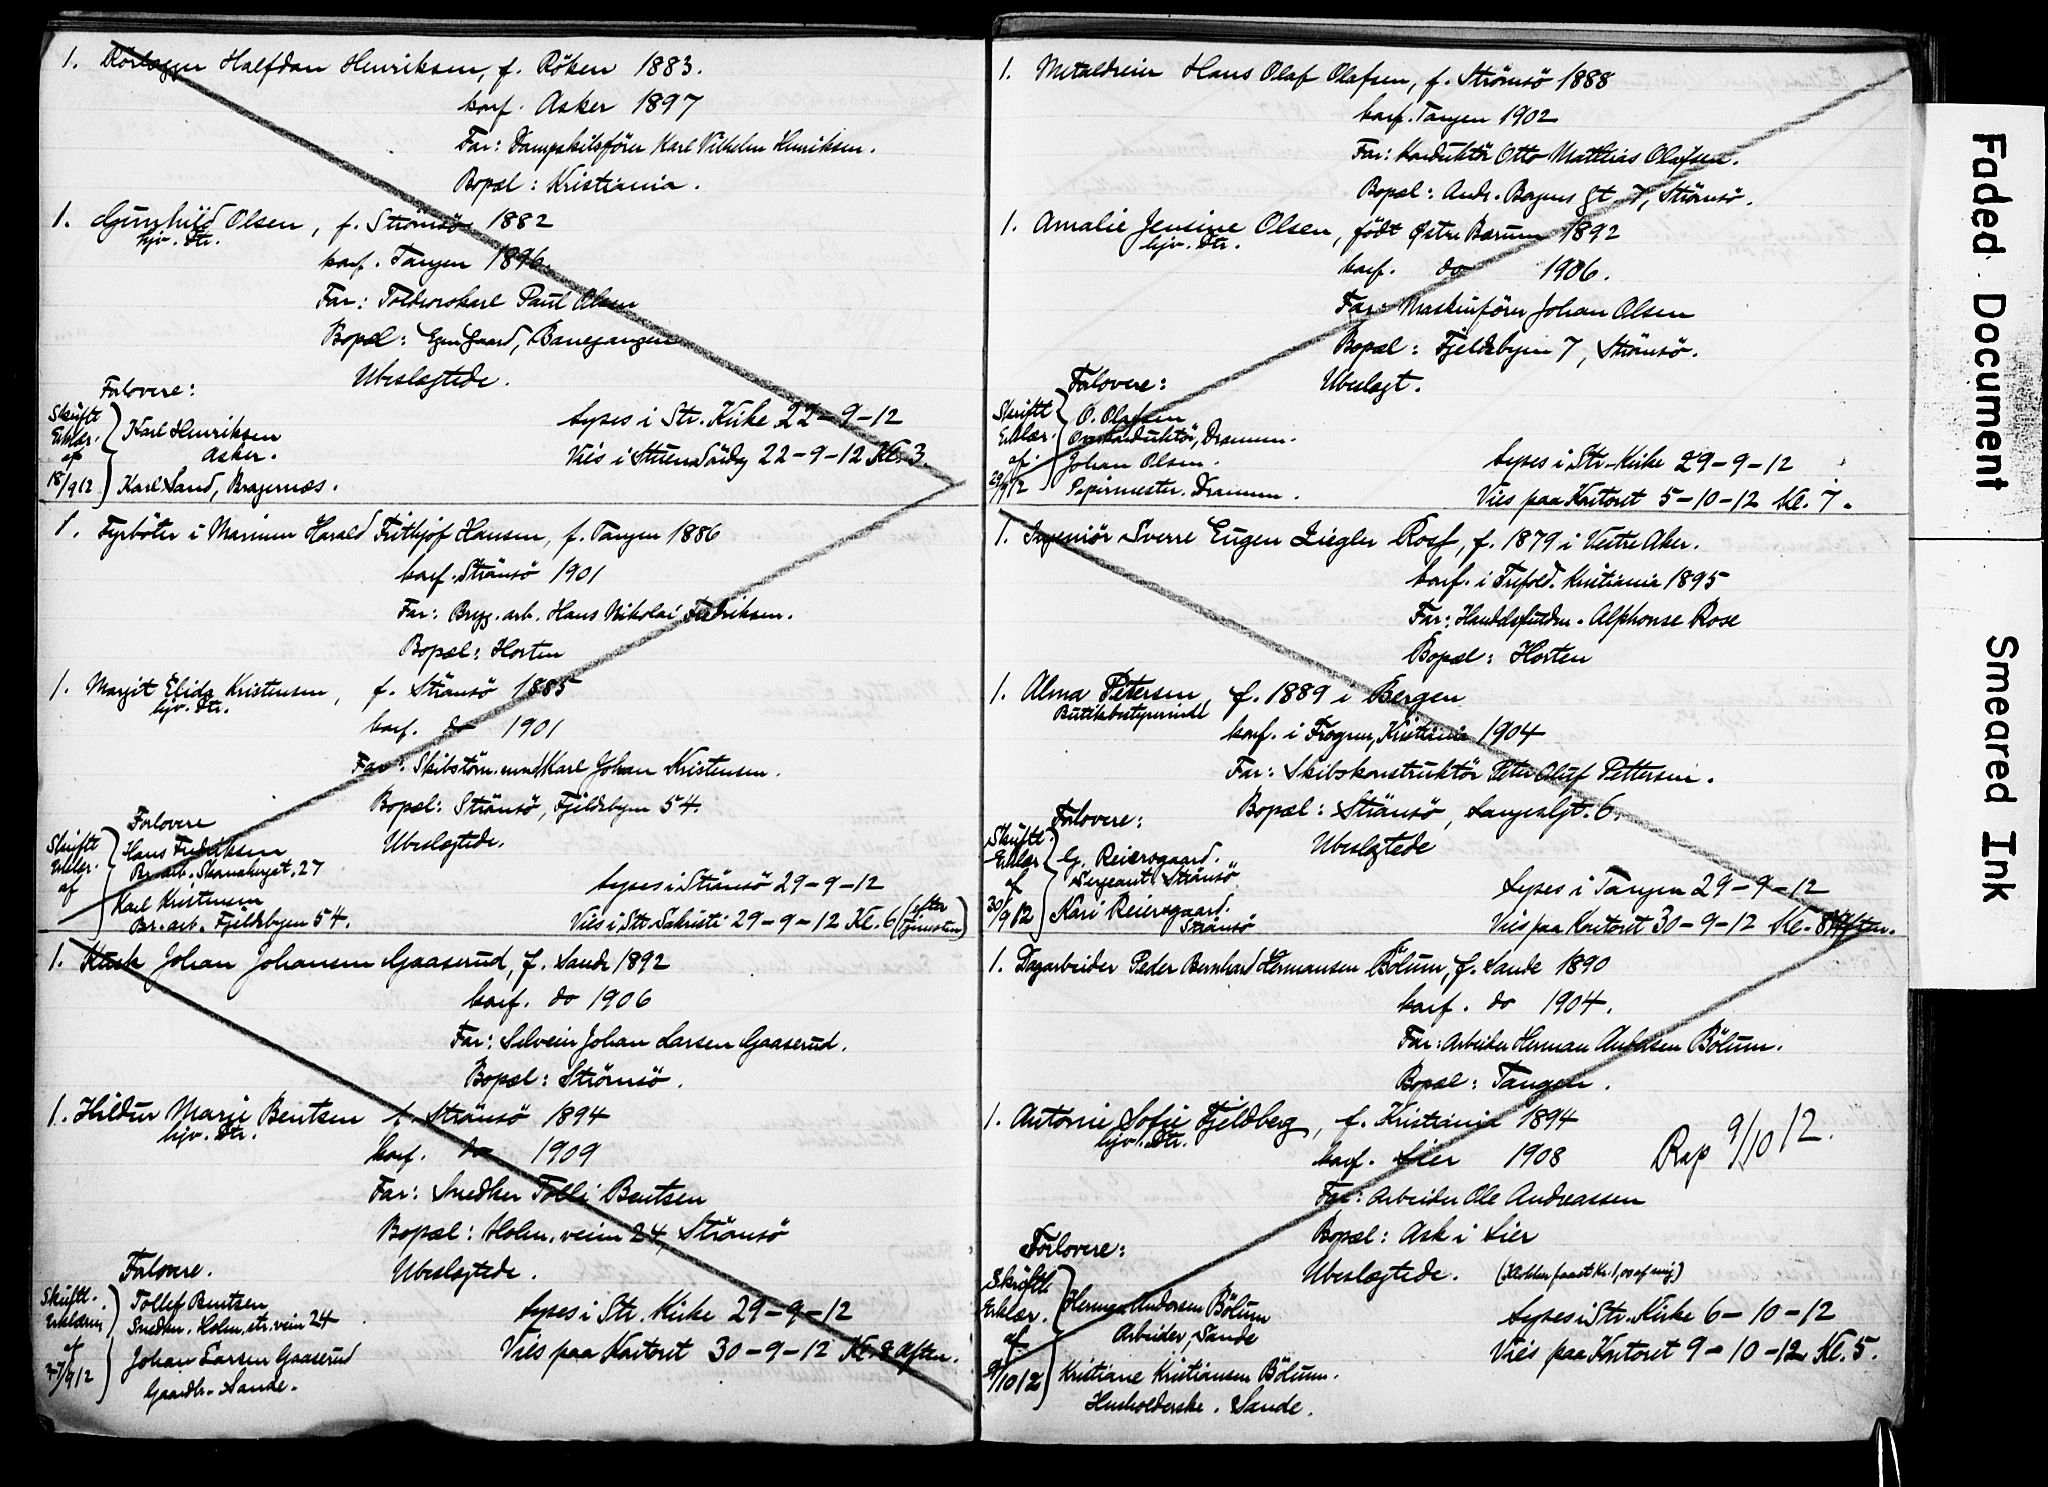 1. Rörlægger Halfdan Henriksen, f. Röken 1883.
konf. Asker 1897
Far: Dampskibsförer Karl Vilhelm Henriksen.
Bopæl: Kristiania.
1. Gunhild Olsen, f. Strömsö 1882
hjv. Dtr.
konf. Tangen 1896.
Far: Toldvorskarl Paul Olsen
Bopæl: Egen Gaard, Banegangen
Ubeslægtede.
Forlovere:
Skriftl. Erklær. af 18/9 12
Karl Henriksen
Asker.
Karl Sand, Bragernæs.
Lyses i Str. Kirke 22-9-12
Vies i Söndag 22-9-12 Kl. 3.
1. Fyrböter i Marinen Harald Frithjof Hansen, f. Tangen 1886
konf. Strömsö 1901
Far: Bryg. arb. Hans Nikolai Fredriksen.
Bopæl: Horten
1. Margit Elida Kristensen, f. Strömsö 1885
hjv. Dtr.
konf. do 1901
Far: Skibstöm. mand Karl Johan Kristensen.
Bopæl: Strömsö, Fjeldsbyen 54.
Ubeslægtede.
Forlovere
Skriftl. Erklær. af
Hans Fredriksen
Br. arb. 27
Karl Kristensen
Br. arb. Fjeldsbyen 54.
Lyses i Strömsö 29-9-12
Vies i Str. Sakristi 29-9-12 Kl. 6 (efter tjenesten)
1. Kusk Johan Johansen Gaaserud, f. Sande 1892
konf. do 1906
Far: Selveier Johan Larsen Gaaserud.
Bopæl: Strömsö.
1. Hildur Marie Bentsen f. Strömsö 1894
hjv. Dtr.
konf. do 1909
Far: Snedker Tolli Bentsen
Bopæl: Holm. veien 24, Strömsö
Ubeslægtede.
Forlovere.
Skriftl. Erklæring af 27/9 12
Tollef Bentsen
Snedker. Holm. str. vein 24
Johan Larsen Gaaserud
Gaardbr. Sande.
Lyses i Str. Kirke 29-9-12
Vies paa Kontoret 30-9-12 Kl. 8 Aften.
1. Metaldreier Hans Olaf Olafsen, f. Strömsö 1888
konf. Tangen 1902
Far: Konduktör Otto Mathias Olafsen.
Bopæl: Andr. gt 7, Strömsö.
1. Amalie Jensine Olsen, födt Østre Bærum 1892
hjv. Dtr.
konf. do 1906.
Far: Maskinförer Johan Olsen
Bopæl: Fjeldsbyen 7, Strömsö.
Ubeslægt.
Forlovere:
Skriftl. Erklær. af. 29/9 12
O. Olafsen
Overkonduktör, Drammen.
Johan Olsen.
Papirmester. Drammen.
Lyses i Str. Kirke 29-9-12
Vies paa Kontoret 5-10-12 kl. 7.
1. Ingeniör Sverre Eugen Ziegler Rosf, f. 1879 i Vestre Aker.
konf. i Trefold. Kristiania 1895
Far: Handelsfuldm. Alphonse Rose
Bopæl: Horten
1. Alma Petersen, f. 1889 i Bergen
Butiksbetyerinde
konf. i Frogner, Kristiania 1904
Far: Skibskonstruktör Peter Oluf Pettersen.
Bopæl: Strömsö, Langesgt. 6.
Ubeslægtede
Forlovere:
Skriftl. Erklær af 30/9 12
G. Reiersgaard.
Sergeant. Strömsö
Kari Reiersgaard.
Strömsö
Lyses i Tangen 29-9-12
Vies paa Kontoret 30-9-12 Kl. 8 Aften.
1. Dagarbeider Peder Bernhard Hermansen Bölum, f. Sande 1890
konf. do 1904.
Far: Arbeider Herman Andersen Bölum.
Bopæl: Tangen.
1. Antonie Sofie Fjeldberg, f. Kristiania 1894
hjv. Dtr.
konf. Lier 1908
Rap 9/10 12.
Far: Arbeider Ole Andreassen
Bopæl: Ask i Lier
Ubeslægtede. (Klokker faaet Kr. 1,00 af mig)
Forlovere:
Skriftl. Erklær. af 9/10 12
Herman Andersen Bölum
Arbeider, Sande
Kristiane Kristiansen Bölum.
Husholderske. Sande.
Lyses i Str. Kirke 6-10-12
Vies paa Kontoret 9-10-12 Kl. 5.
Faded Document
Smeared Ink